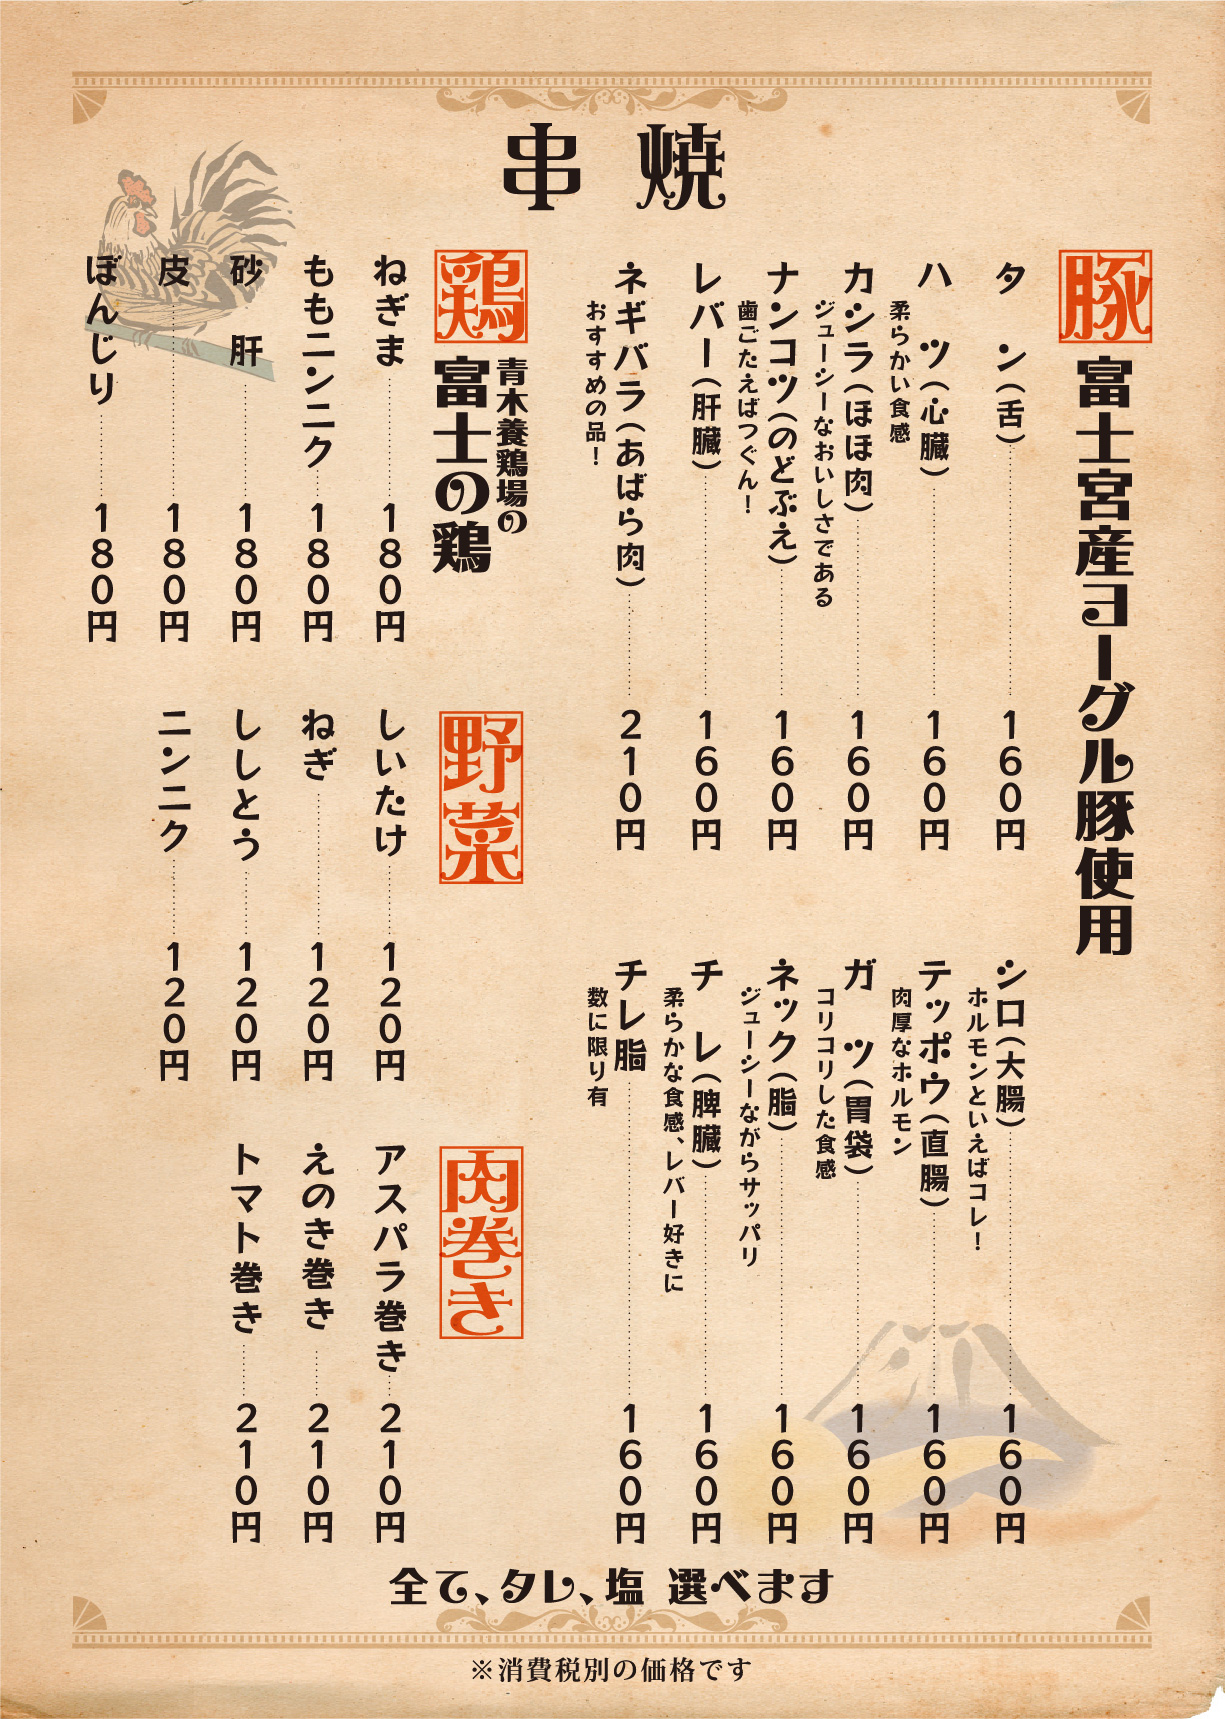 串焼
豚
富士宮産ヨーグル豚使用
タン(舌) 160円
ハツ(心臓) 160円
柔らかい食感
カシラ(ほほ肉) 160円
ジューシーなおいしさである
ナンコツ(のどぶえ) 160円
歯ごたえばつぐん！
レバー(肝臓) 160円
ネギバラ(あばら肉) 210円
おすすめの品！
シロ(大腸) 160円
ホルモンといえばコレ！
テッポウ(直腸) 160円
肉厚なホルモン
ガツ(胃袋) 160円
コリコリした食感
ネック(脂) 160円
ジューシーながらサッパリ
チレ(脾臓) 160円
柔らかな食感、レバー好きに
チレ脂 160円
数に限り有
鶏
青木養鶏場の
富士の鶏
ねぎま 180円
ももニンニク 180円
砂肝 180円
皮 180円
ぼんじり 180円
野菜
しいたけ 120円
ねぎ 120円
ししとう 120円
ニンニク 120円
肉巻き
アスパラ巻き 210円
えのき巻き 210円
トマト巻き 210円
全て、タレ、塩 選べます
※消費税別の価格です